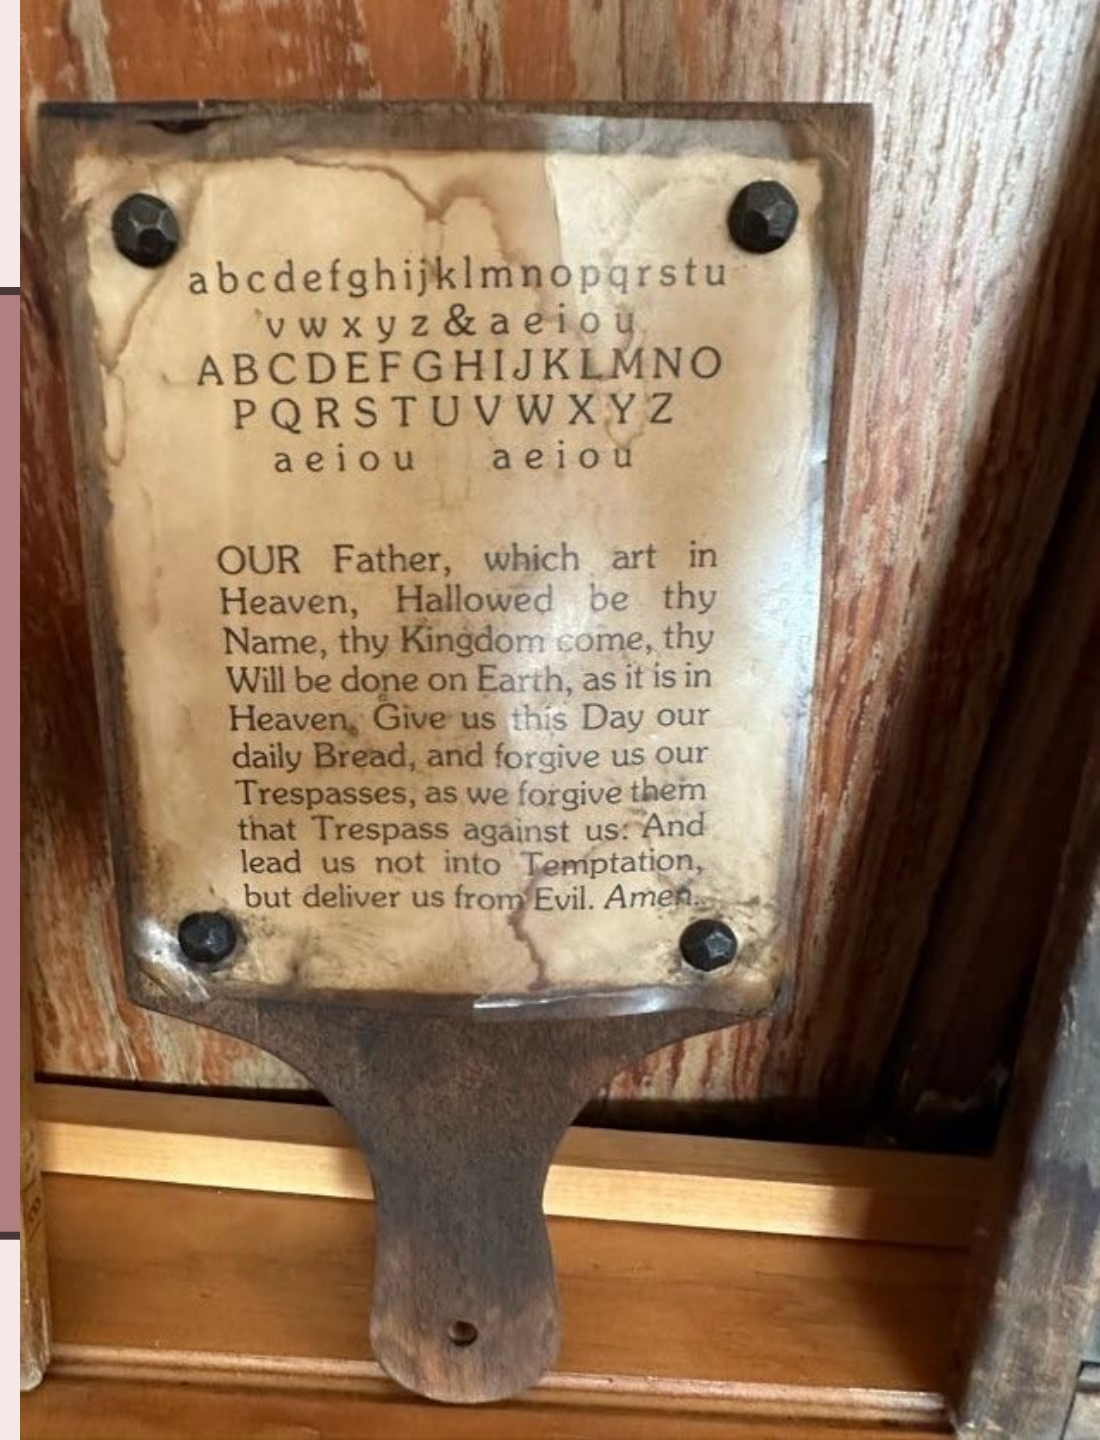 abcdefghijklmnopqrstu
vwxyz&aeiou
ABCDEFGHIJKLMNO
PQRSTUVWXYZ
aeiou aeiou
OUR Father, which art in
Heaven, Hallowed be thy
Name, thy Kingdom come, thy
Will be done on Earth, as it is in
Heaven. Give us this Day our
daily Bread, and forgive us our
Trespasses, as we forgive them
that Trespass against us: And
lead us not into Temptation,
but deliver us from Evil. Amen.